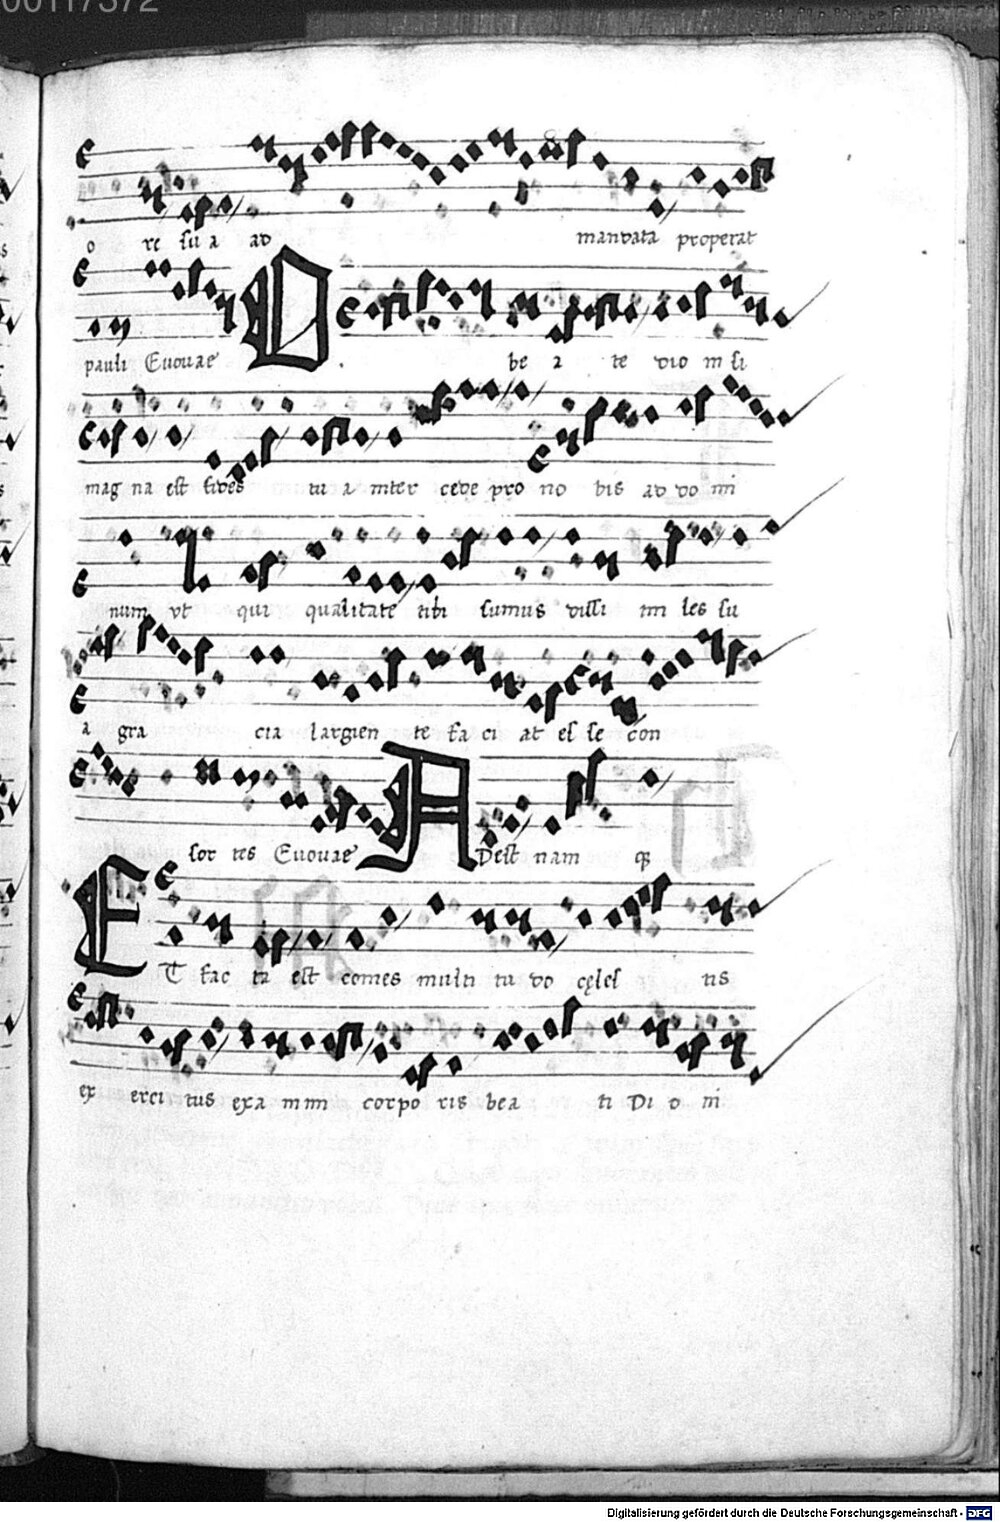 00117372
o re sua ad mandata properat
pauli Euouae O be a te dio ni si
mag na est fides tu a inter cede pro no bis ad do mi
num vt qui qualitate tibi sumus dissi mi les su
a gra cia largien te fa ci at es se con
sor tes Euouae ADest nam
ET fac ta est comes multi tu do cęles tis
ex erci tus exa mini corpo ris bea ti Di o ni
Digitalisierung gefördert durch die Deutsche Forschungsgemeinschaft - DFG